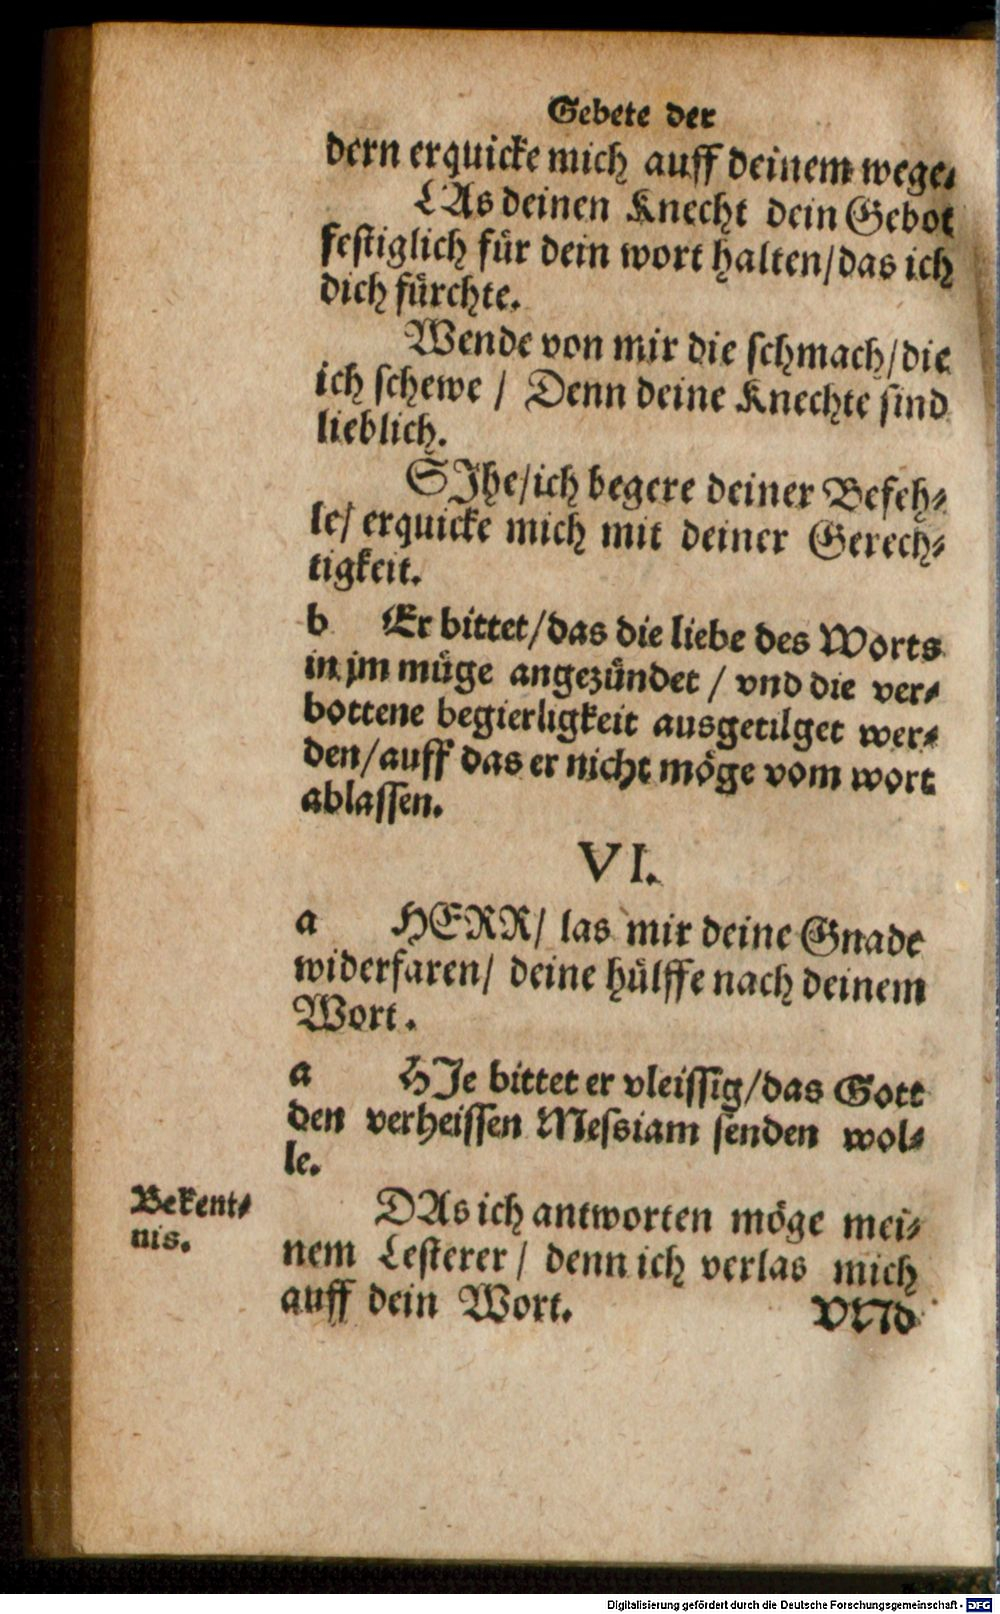 Gebete der
dern erquicke mich auff deinem wege.
LAs deinen Knecht dein Gebot
festiglich für dein wort halten/das ich
dich fürchte.
Wende von mir die schmach/die
ich schewe / Denn deine Knechte sind
lieblich.
SIhe/ich begere deiner Befeh-
le/ erquicke mich mit deiner Gerech-
tigkeit.
b Er bittet/das die liebe des Worts
in jm müge angezündet / vnd die ver-
bottene begierligkeit ausgetilget wer-
den/auff das er nicht möge vom wort
ablassen.
VI.
a HERR/ las mir deine Gnade
widerfaren/ deine hülffe nach deinem
Wort.
a HIe bittet er vleissig/das Gott
den verheissen Messiam senden wol-
le.
Bekent-
nis.
DAs ich antworten möge mei-
nem Lesterer / denn ich verlas mich
auff dein Wort.
VNd
Digitalisierung gefördert durch die Deutsche Forschungsgemeinschaft - DFG